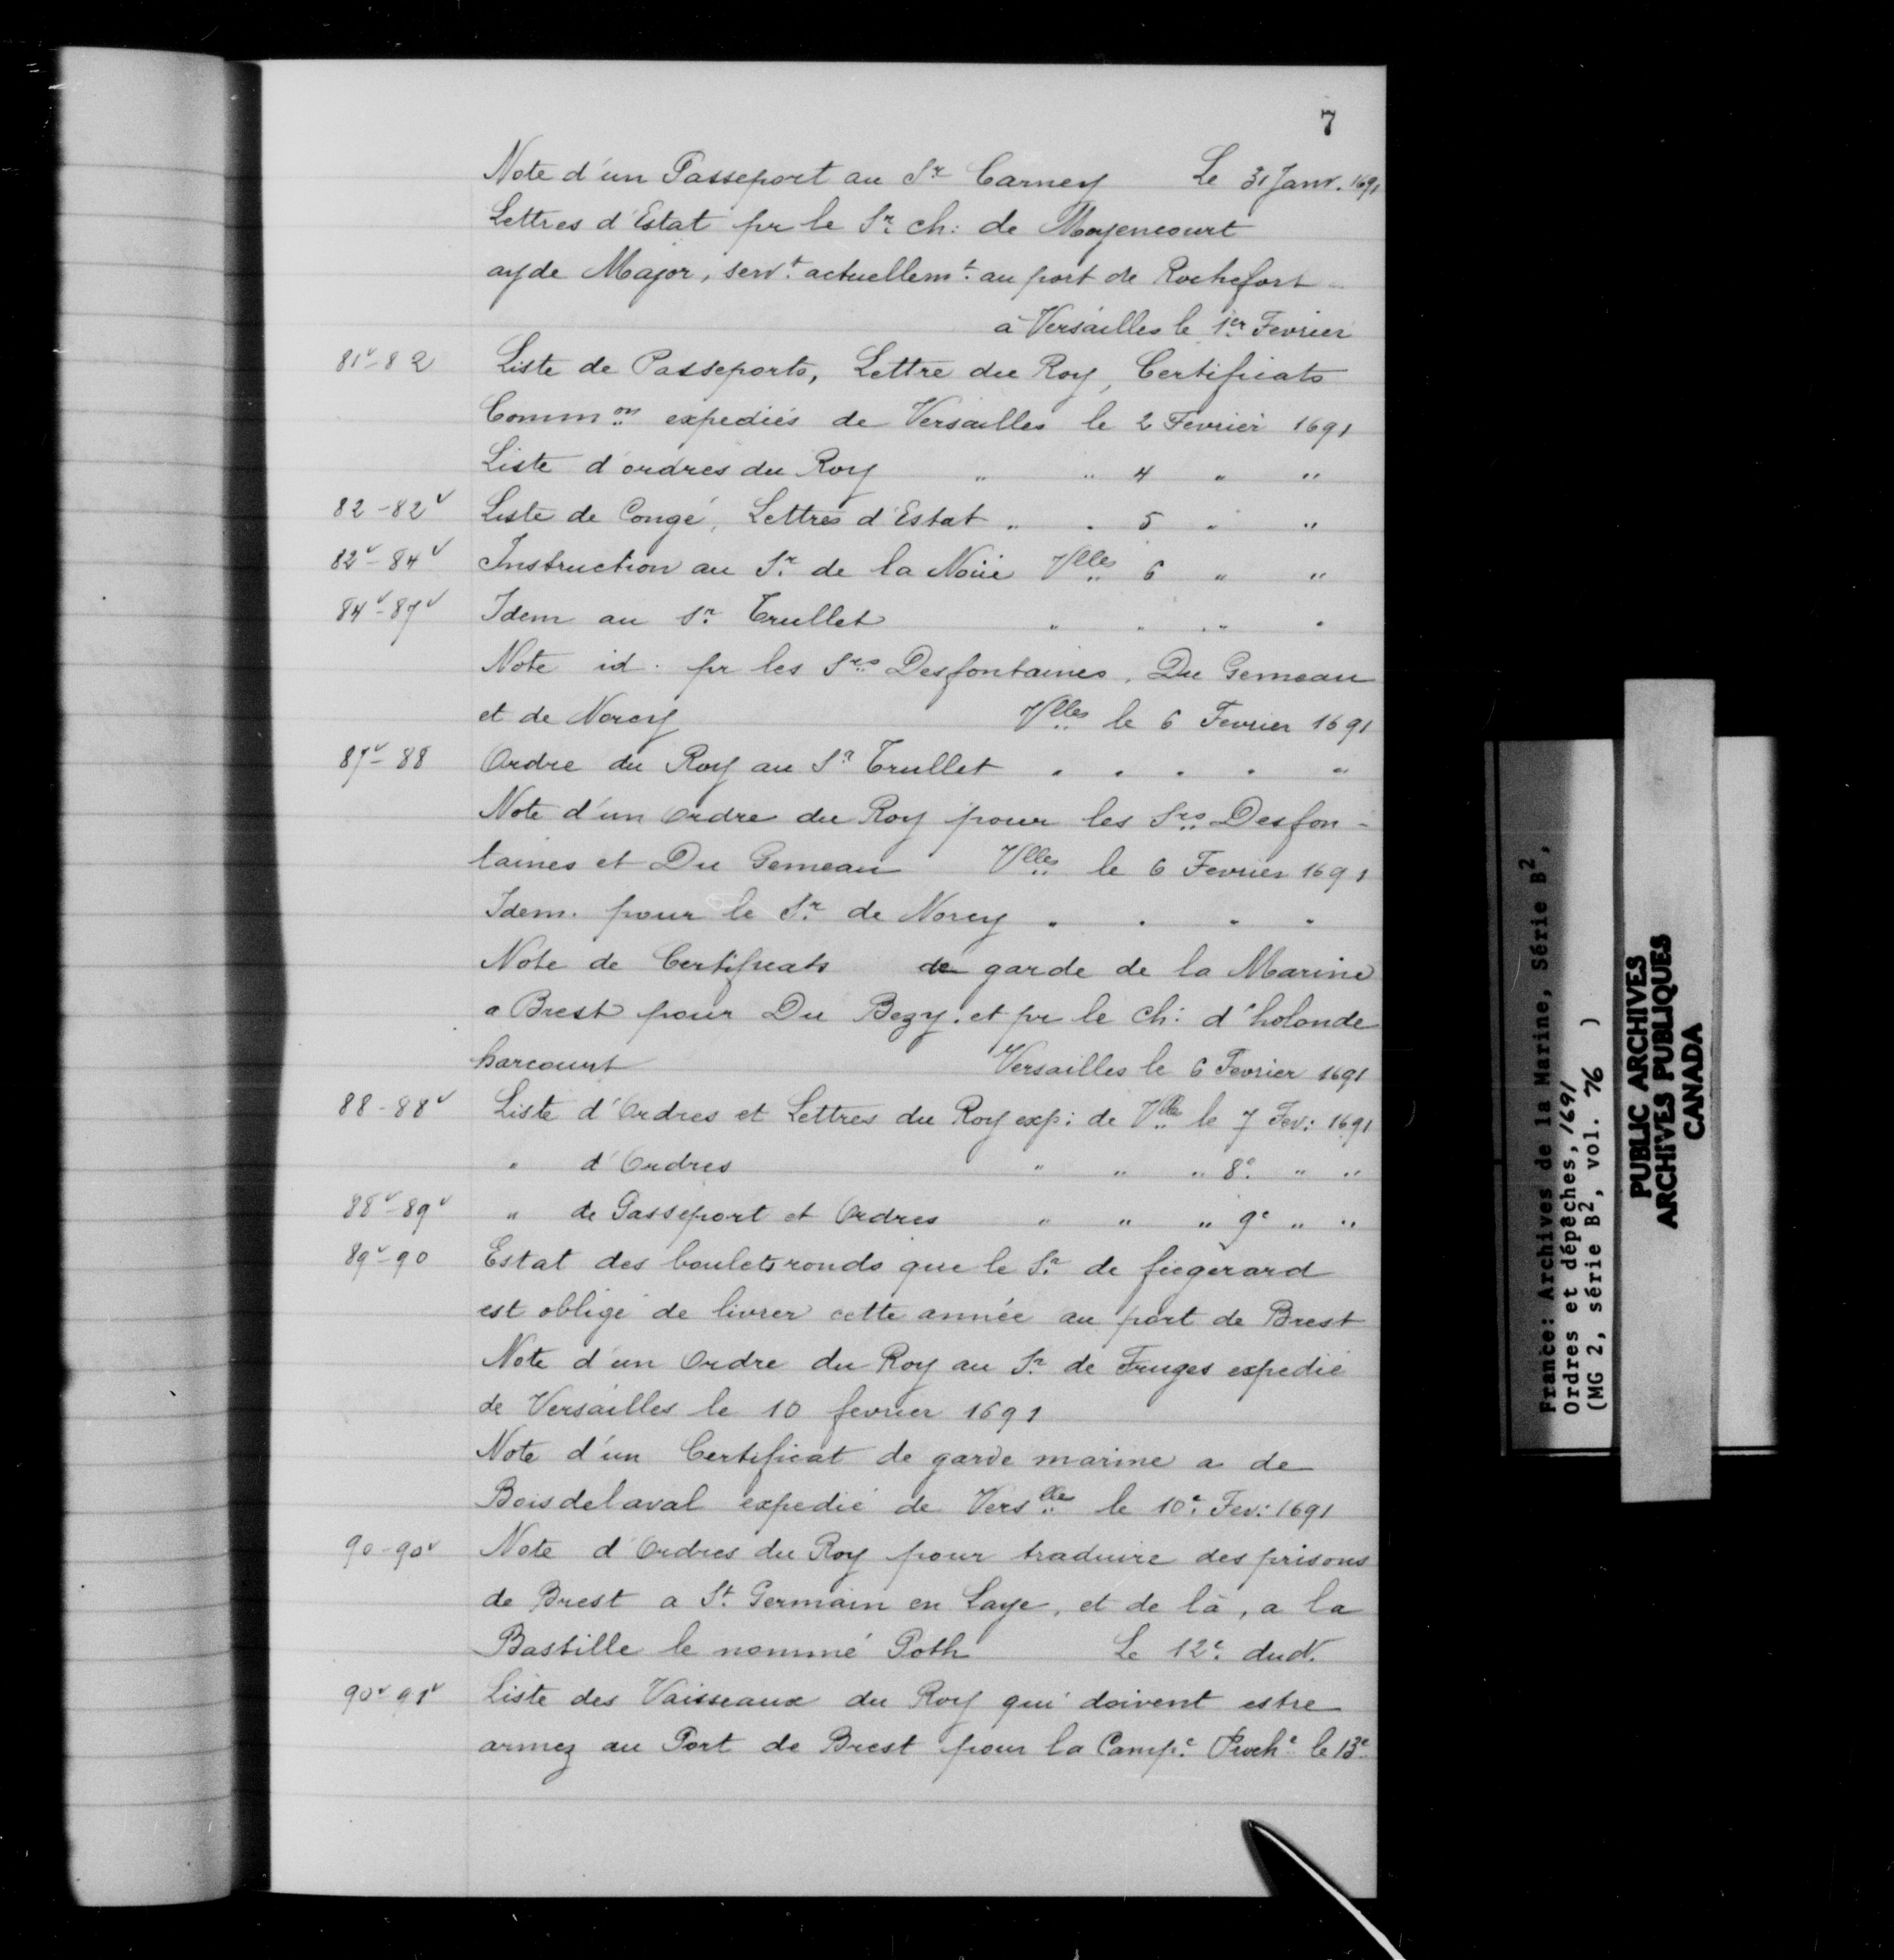 7
Note d'un Passeport au Sr Carney Le 31 Janv. 1691
Lettres d'Estat pr le Sr ch: de Moyencourt
ayde Major, servt actuellemt au port de Rochefort
à Versailles le 1er Fevrier
81v-82 Liste de Passeports, Lettre du Roy, Certificats
Common expediés de Versailles le 2 Fevrier 1691
Liste d'ordres du Roy " " 4 " "
82-82v Liste de Congé, Lettres d'Estat " " 5 " "
82v-84v Instruction au Sr de la Noüe Vlles 6 " "
84v-87v Idem au Sr Trullet " " " "
Note id. pr les Srs Desfontaines, Du Gemeau
et de Norey Vlles le 6 Fevrier 1691
87v-88 Ordre du Roy au Sr Trullet " " " " "
Note d'un Ordre du Roy pour les Srs Desfon-
taines et Du Gemeau Vlles le 6 Fevrier 1691
Idem. pour le Sr de Norey " " " "
Note de Certificats de garde de la Marine
a Brest pour Du Bezy. et pr le ch: d'holonde
harcourt Versailles le 6 Fevrier 1691
88-88v Liste d'Ordres et Lettres du Roy exp: de Vlles le 7 Fev: 1691
" d'Ordres " " " 8e " "
88v-89v " de Passeport et Ordres " " " 9e " "
89v-90 Estat des boulets ronds que le Sr de fiegerard
est obligé de livrer cette année au port de Brest
Note d'un Ordre du Roy au Sr de Fruges expedié
de Versailles le 10 fevrier 1691
Note d'un Certificat de garde marine a de
Boisdelaval expedié de Verslles le 10e Fev: 1691
90-90v Note d'Ordres du Roy pour traduire des prisons
de Brest a St Germain en Laye, et de là, a la
Bastille le nommé Poth Le 12e dud.
90v 91v Liste des Vaisseaux du Roy qui doivent estre
armez au Port de Brest pour la Campe Proche le 13e
France: Archives de la Marine, Série B2,
Ordres et dépêches, 1691
(MG 2, série B2, vol. 76 )
PUBLIC ARCHIVES
ARCHIVES PUBLIQUES
CANADA